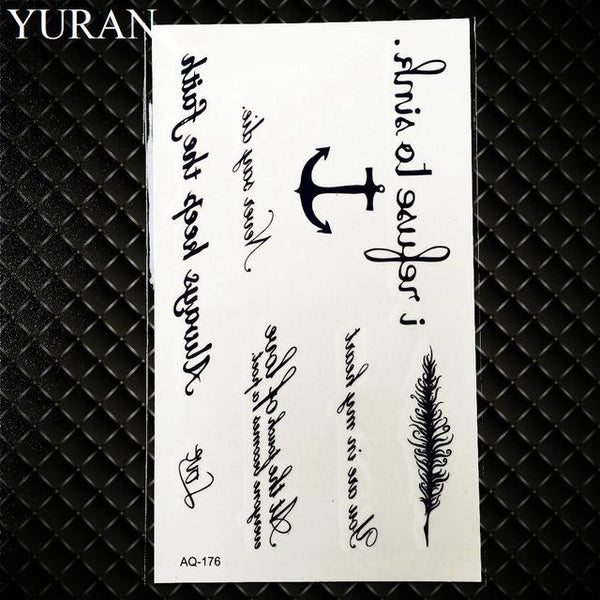 YURAN
Always keep the Faith
Never say die.
i refuse to sink.
Love
At the touch of love
everyone becomes a poet
You are in my heart
AQ-176